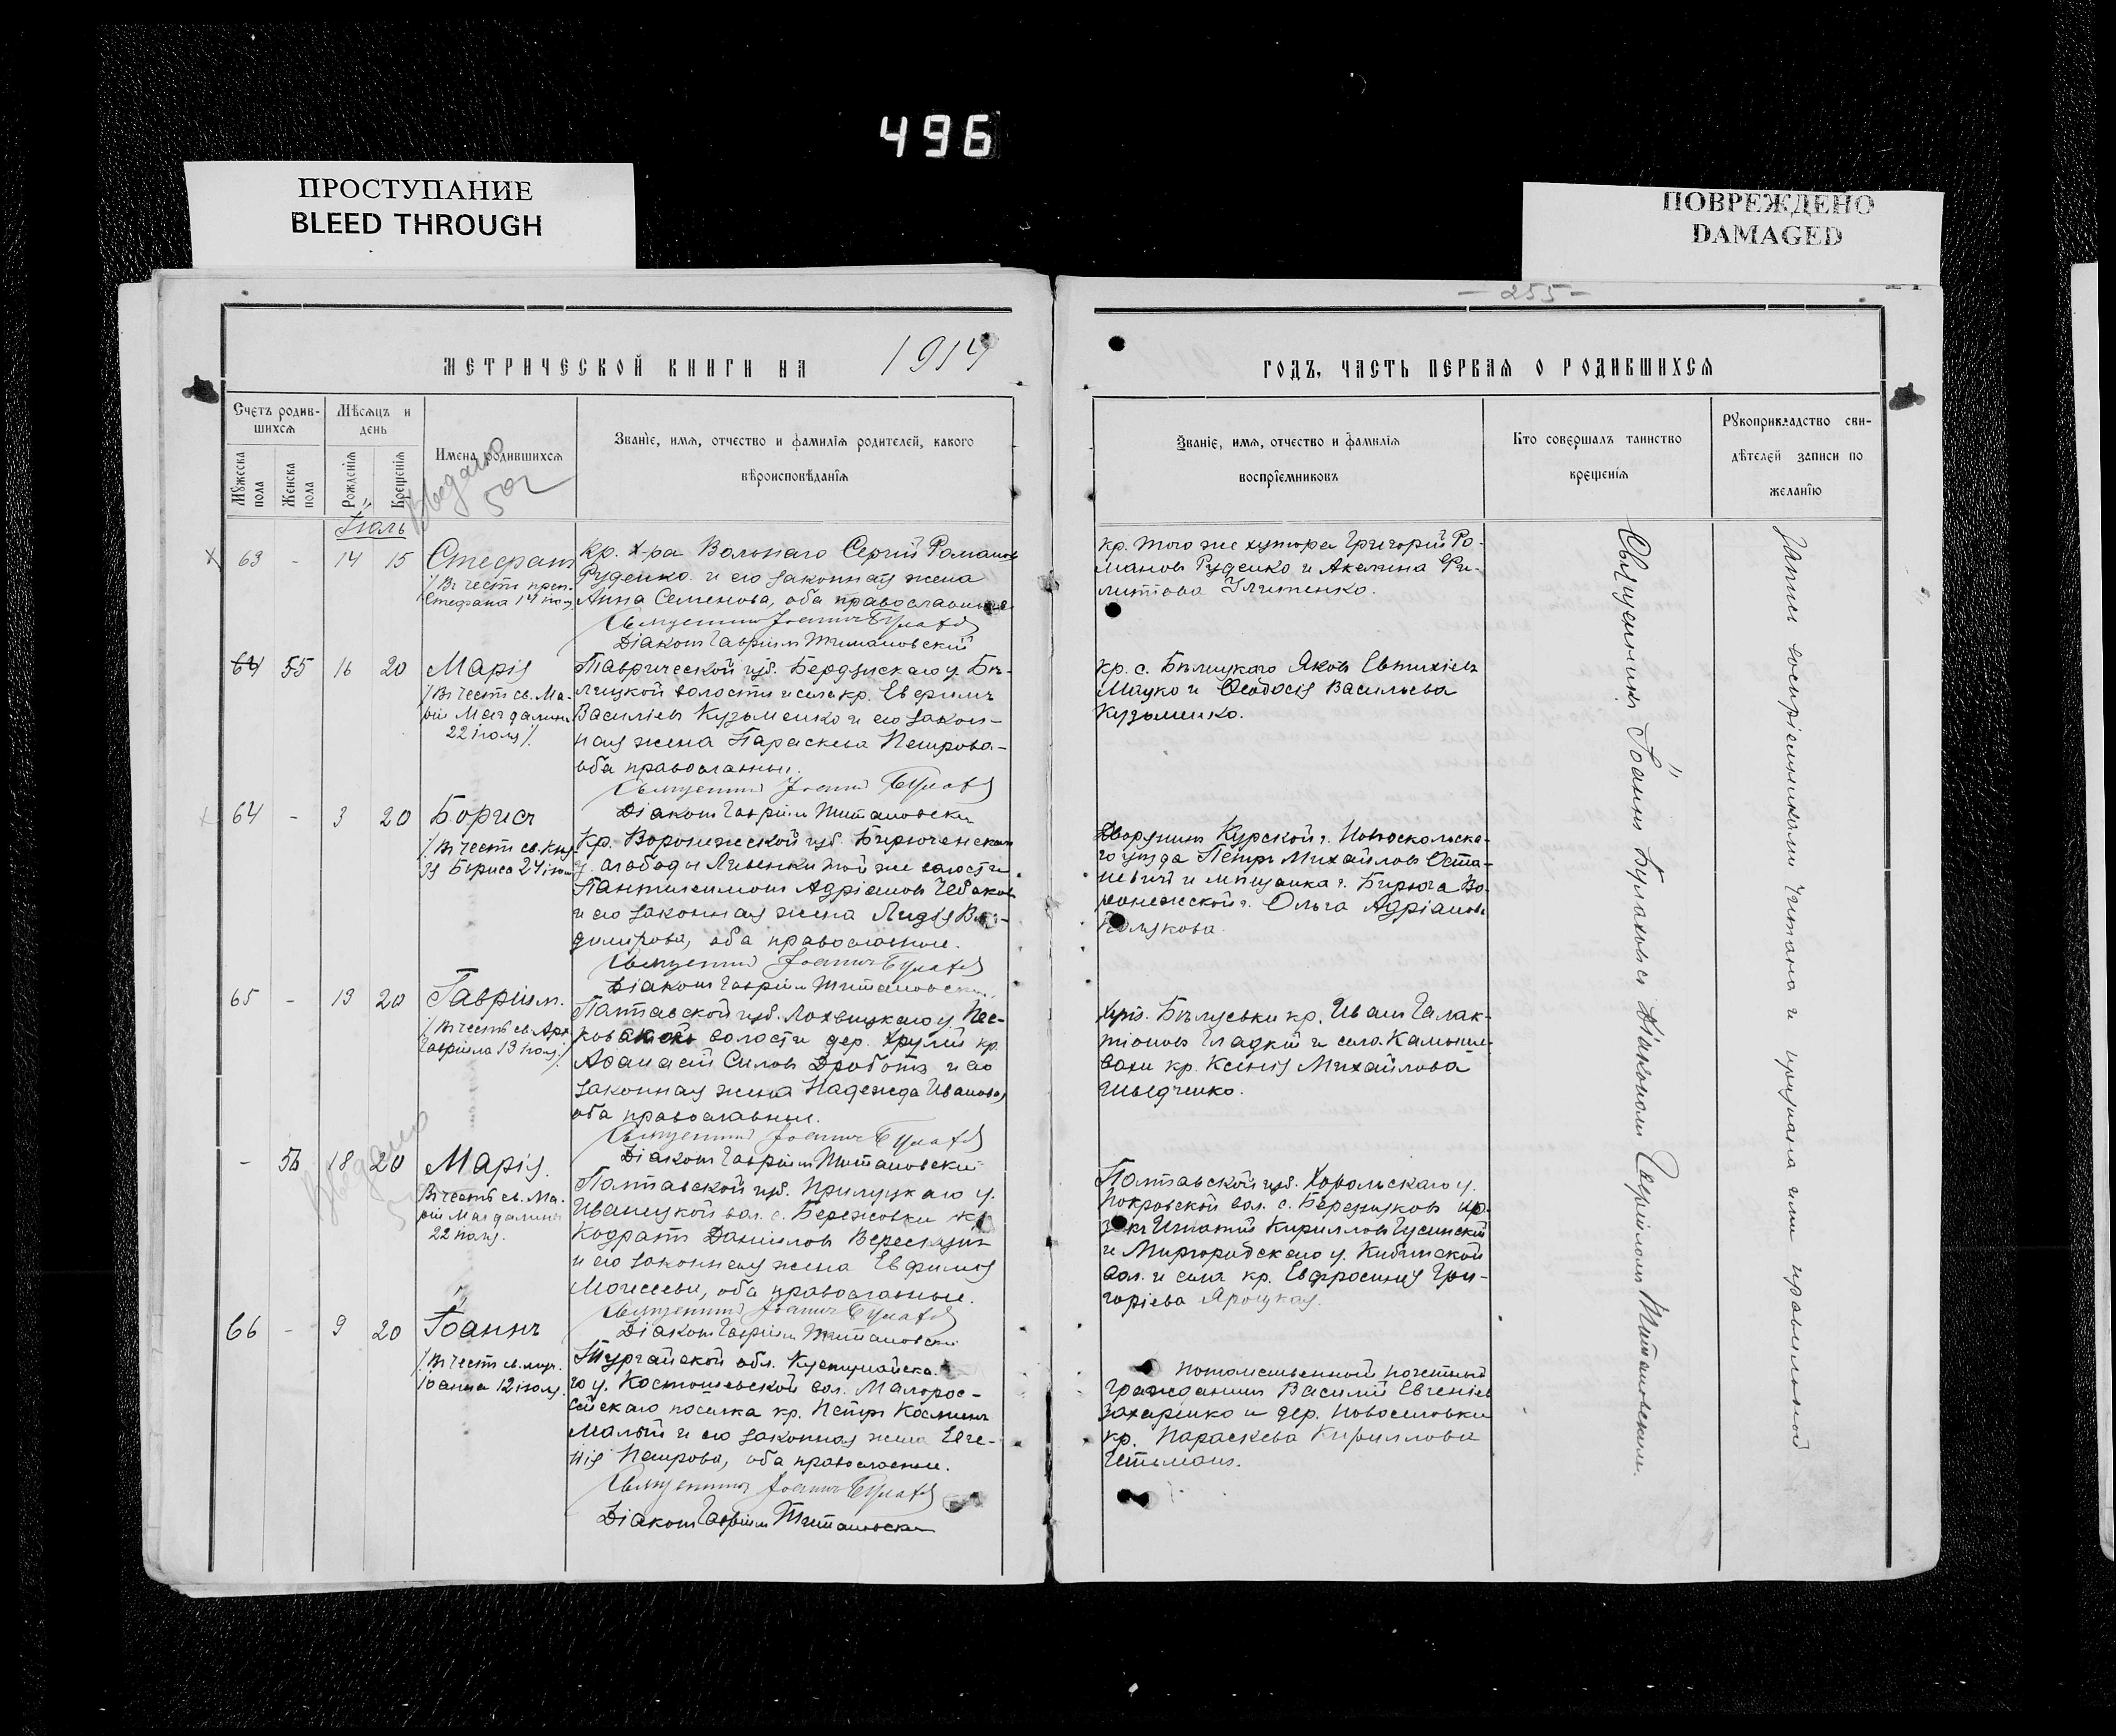 496
ПРОСТУПАНИЕ
BLEED THROUGH
ПОВРЕЖДЕНО
DAMAGED
- 255 -
МЕТРИЧЕСКОЙ КНИГИ НА 1914
ГОДЪ, ЧАСТЬ ПЕРВАЯ О РОДИВШИХСЯ
Счетъ родив-
шихся
Мужеска пола
Женска пола
Мѣсяцъ и
день
Рожденія
Крещенія
Имена родившихся
Званіе, имя, отчество и фамилія родителей, какого
вѣроисповѣданія
Званіе, имя, отчество и фамилія
воспріемниковъ
Кто совершалъ таинство
крещенія
Рукоприкладство сви-
дѣтелей записи по
желанію
Іюль
63 - 14 15 Стефанъ
/Въ честь преп.
Стефана 14 іюля
Кр. х-ра Вольнаго Сергій Романовъ
Руденко и его законная жена
Анна Семенова, оба православные
Священникъ Іоаннъ
Діаконъ Гавріилъ
кр. того же хутора Григорій Ро-
мановъ Руденко и Акилина Фи-
липпова
64 55 16 20 Марія
/Въ честь св. Ма-
ріи Магдалины
22 іюля/.
Таврической губ. Бердянскаго у. Бѣ-
лицкой волости и села кр. Евфимъ
Васильевъ Кузьменко и его закон-
ная жена Параскева Петрова -
оба православные.
Священникъ Іоаннъ
Діаконъ Гавріилъ
кр. с. Бѣлицкаго Яковъ Евтихіевъ
Мацко и Ѳеодосія Васильева
Кузьменко.
64 - 3 20 Борисъ
/Въ честь св. Кня-
зя Бориса 24 іюля
Кр. Воронежской губ. Бирюченскаго
у. слободы Ливенки той же волости
Пантелеимонъ Адріановъ
и его законная жена Лидія
димірова, оба православные.
Священникъ Іоаннъ
Діаконъ Гавріилъ
Дворянинъ Курской г. Новооскольска-
го уѣзда Петръ Михайловъ Оста-
невичъ и мѣщанка г. Бирюча Во-
ронежской г. Ольга Адріанова
65 - 13 20 Гавріилъ.
/Въ честь св. Арх.
Гавріила 13 іюля/.
Полтавской губ. Лохвицкаго у. Пес-
ковской волости дер. кр.
Аѳанасій Силовъ Дроботъ и его
законная жена Надежда Иванова,
оба православные.
Священникъ Іоаннъ
Діаконъ Гавріилъ
кр. Иванъ Галак-
тіоновъ Гладкій и села Камыше-
вахи кр. Ксенія Михайлова
Шведченко.
- 56 18 20 Марія.
Въ честь св. Ма-
ріи Магдалины
22 іюля.
Полтавской губ. Прилуцкаго у.
Иваницкой вол. с. Бережовки кр.
Кодратъ Даниловъ
и его законная жена Евфимія
Моисеева, оба православные.
Священникъ Іоаннъ
Діаконъ Гавріилъ
Полтавской губ. Хорольскаго у.
Покровской вол. с. Березняковъ
Игнатій Кирилловъ
и Миргородскаго у. Кибинской
вол. и села кр. Евфросинія Гри-
горіева Яроцкая.
66 - 9 20 Іоаннъ
/Въ честь св. муч.
Іоанна 12 іюля.
Тургайской обл. Кустанайска-
го у. вол. Малорос-
сійскаго поселка кр. Петръ Косминъ
Малый и его законная жена Евге-
нія Петрова, оба православные.
Священникъ Іоаннъ
Діаконъ Гавріилъ
потомственный почетный
гражданинъ Василій Евгеніевъ
Захаренко и дер. Новоселовки
кр. Параскева Кириллова
Гетьманъ.
Священникъ Іоаннъ съ діакономъ Гавріиломъ
Запись воспріемниками читана и признана ими правильной